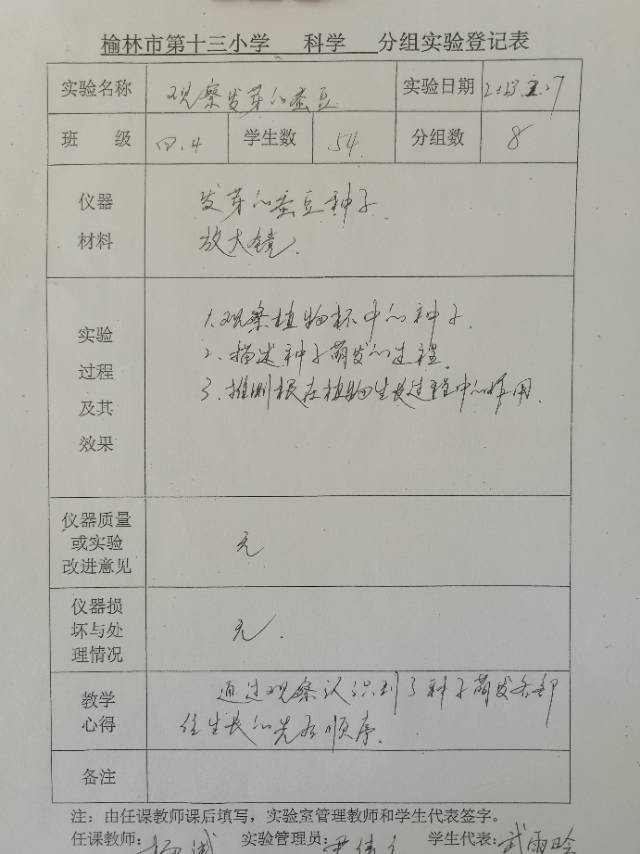 榆林市第十三小学 科学 分组实验登记表
实验名称 观察发芽的蚕豆 实验日期
班 级 四.4 学生数 54 分组数 8
仪器材料
发芽的蚕豆种子.
放大镜.
实验过程及其效果
1.观察植物杯中的种子.
2.描述种子萌发的过程.
3.推测根在植物生长过程中的作用.
仪器质量或实验改进意见 无
仪器损坏与处理情况 无.
教学心得
通过观察认识到了种子萌发各部
位生长的先后顺序.
备注
注：由任课教师课后填写，实验室管理教师和学生代表签字。
任课教师： 实验管理员： 学生代表：